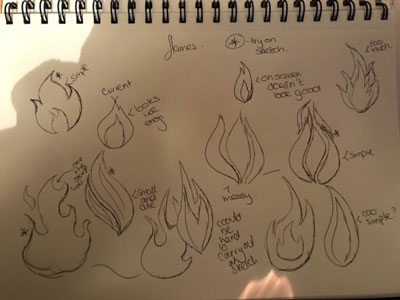 flames.
* - try on
sketch.
* simple
current
looks
like
emoji
on screen
doesn't
look good
too
much
small
and
cute
↑
messy
could
be
hard
to
carry out
on
sketch
simple
too
simple?